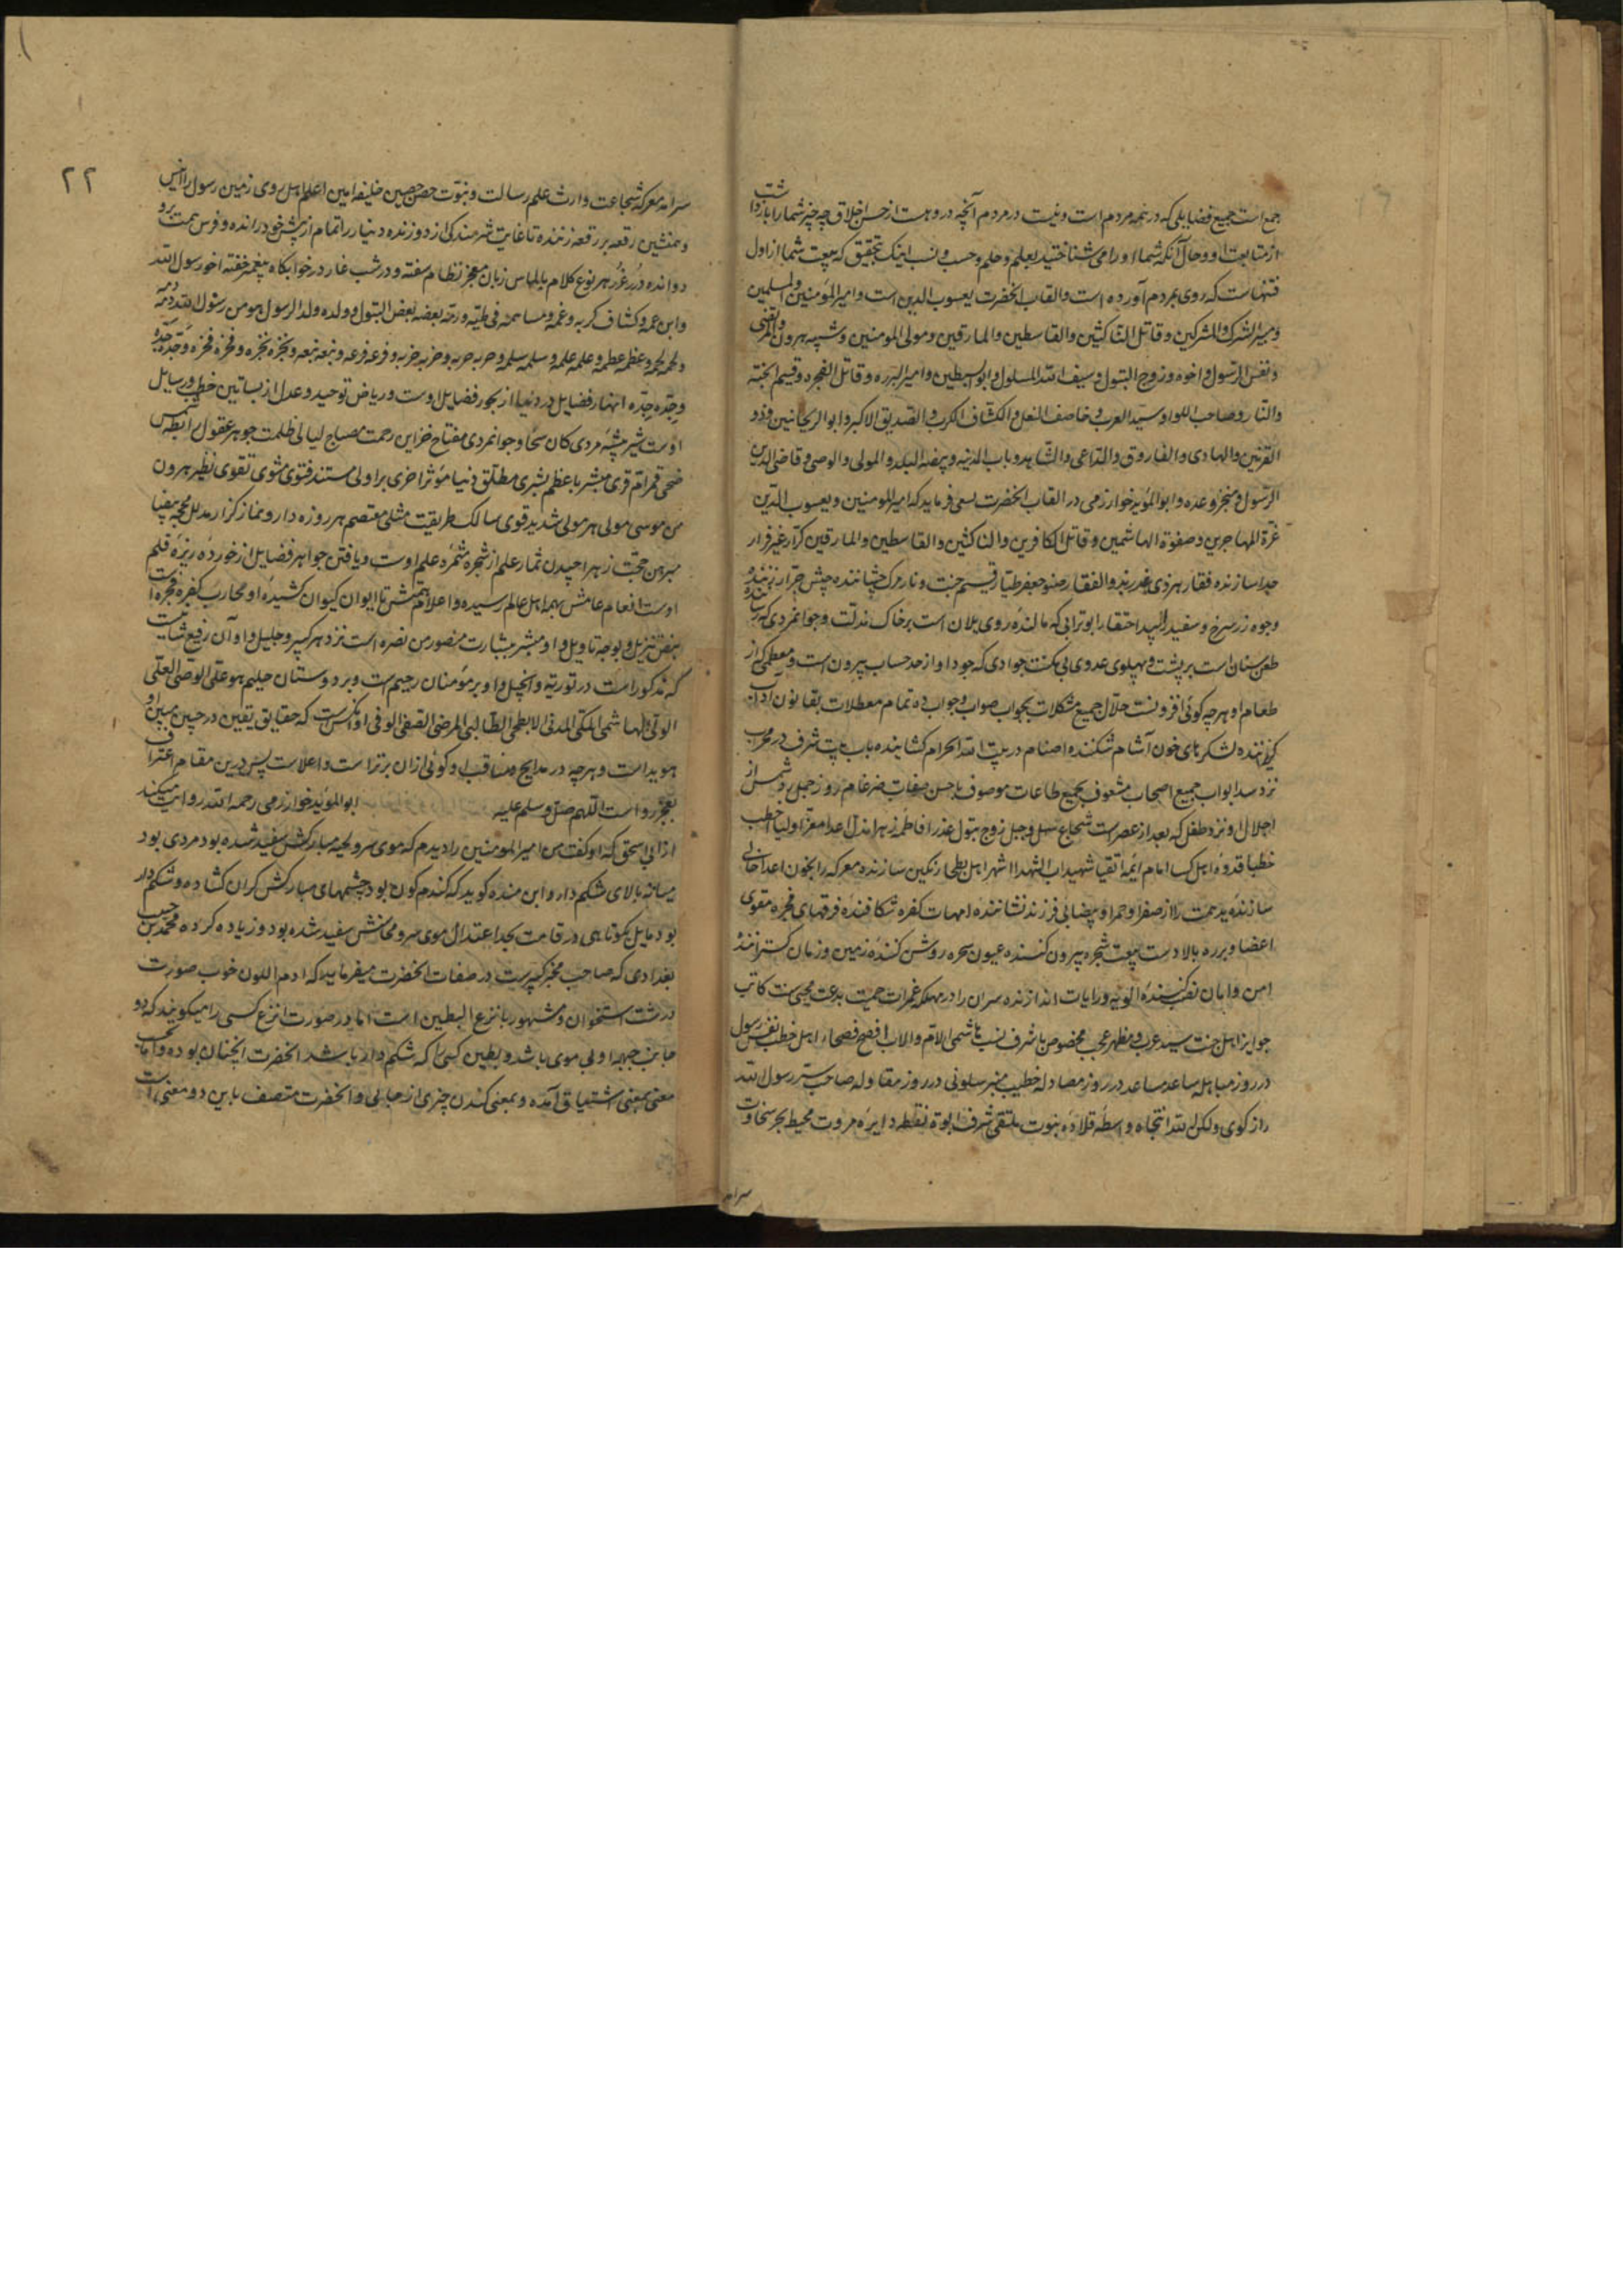 جمع است جمیع فضایلی که در همه مردم است و نیست در مردم آنچه در وهست از حسن اخلاق چه چیز شما را بازداشت
از متابعت او و حال آنکه شما او را می شناختید بعلم و حلم و حسب و نسب اینک بتحقیق که بیعت شما از اول
فتنهاست که روی بمردم آورده است و القاب آنحضرت یعسوب الدین است و امیر المؤمنین والمسلمین
و مبیر الشرک والمشرکین و قاتل الناکثین والقاسطین والمارقین و مولی المومنین و شبیه هرون والمرتضی
و نفس الرسول و اخوه و زوج البتول و سیف الله المسلول و ابو السبطین و امیر البرره و قاتل الفجره و قسیم الجنة
والنار و صاحب اللواء و سید العرب و خاصف النعل و الکشاف الکرب و الصدیق الاکبر و ابو الریحانین و ذو
القرنین والهادی والفاروق والداعی والشاهد و باب المدینه و بیضة البلد والمولی والوصی و قاضی الدین
الرسول و منجز وعده و ابو المؤید خوارزمی در القاب آنحضرت سعی فرماید که امیر المومنین و یعسوب الدین
غرة المهاجرین و صفوة الهاشمین و قاتل الکافرین والناکثین والقاسطین والمارقین کرار غیر فرار
جدا سازنده فقار هر ذی غدر بذو الفقار صنو جعفر طیار قسیم جنت و نار
وجوه زر سرخ و سفید ابوترابی که مالنده روی یلان است برخاک مذلت و جوانمردی که
طعن سنان است بر پشت و پهلوی عدوی بی مکنت جوادی که جود او از حد حساب بیرون است و معطی که از
طعام او هرچه کوئی افزونست حلال جمیع مشکلات بجواب صواب و جواب ده تمام معطلات بقانون آداب
کریزاننده لشکرهای خون آشام شکننده اصنام در بیت الله الحرام کشاینده باب بیت شرف در محراب
نزد سد ابواب جمیع اصحاب مشعوف بجمیع طاعات موصوف باحسن صفات ضرغام روز جمل رد شمس از
اجلال او نزد طفل که بعد از عصر است شجاع سهل و جبل زوج بتول عذرا فاطمه زهرا مذل اعدا معز اولیا اخطب
خطبا قدوه اهل کسا امام ائمه اتقیا شهید اب الشهدا اشهر اهل بطحا رنکین سازنده معرکه را بخون اعدا خالی
سازنده ید همت را از صفرا و حمرا و بیضا بی فرزند نشاننده امهات کفره شکافنده فرقهای فجره مقوی
اعضاد برره بالادست بیعت شجره بیرون کننده عیون سحره روشن کننده زمین و زمان کستراننده
امن و امان نصب کننده الویه و رایات اندازنده سران را در مهلکه غمرات ممیت بدعت محیی سنت کاتب
جوایز اهل جنت سید عرب و مظهر عجب مخصوص باشرف نسب هاشمی الام والاب افصح فصحاء اهل خطب نفس رسول
در روز مباهله ساعد مساعد در روز مصادله خطیب منبر سلونی در روز مقاوله صاحب سر رسول الله
راز کوی ولکن الله انتجاه واسطه قلاده بنوت ملتقی شرف ابوة نقطه دایره مروت محیط بحر سخاوت
سرامد
۲۲
سرامد معرکه شجاعت وارث علم رسالت و نبوت حصن حصین خلیفه امین اعلم اهل روی زمین رسول را انیس
و همنشین رقعه بر رقعه زننده تا غایت شرمندکی از دوزنده دنیا را تمام از پیش خود رانده و فرس همت برو
دوانده درر غرر هر نوع کلام بالماس زبان معجز نظام سفته و در شب غار در خوابکاه پیغمبر خفته اخو رسول الله
وابن عمه و کشاف کربه و غمه و مساهمه فی طمه ورمه بعضه بعض البتول و ولده ولد الرسول هو من رسول الله دمه دمه
ولحمه لحمه و عظمه عظمه و علمه علمه و سلمه سلمه و حربه حربه و حزبه حزبه و فرعه فرعه و نبعه نبعه و نجره نجره و فخره فخره و جده جده
وجده جده انهار فضایل در دنیا از بحور فضایل اوست و ریاض توحید و عدل از بساتین خطب و رسایل
اوست شیر بیشه مردی کان سخا و جوانمردی مفتاح خزاین رحمت مصباح لیالی ظلمت جوهر عقول رابطه شمس
ضحی قمر ام قری مبشر باعظم بشری مطلق دنیا مؤثر اخری براولی مستند فتوی مثوی تقوی نظیر هرون
من موسی مولی هر مولی شدید قوی سالک طریقت مثلی معتصم هر روزه دار و نماز کزار مدلل محجه بیضا
مبرهن حجت زهرا چیدن ثمار علم از شجره مثمره علم اوست و یافتن جواهر فضایل از خورده ریزه قلم
اوست انعام عامش بهمه اهل عالم رسیده و اعلام همتش تا ایوان کیوان کشیده او محارب کفره و فجره است
بنص تنزیل و بوجه تاویل و او مبشر ببشارت منصور من نصره است نزد هر کبیر و جلیل و او آن رفیع شانیست
که مذکور است در توریه و انجیل و او بر مؤمنان رحیم است و بر دوستان حلیم هو علی الوصی العلی
الولی الهاشمی المکی المدنی الابطحی الطالبی المرضی الصفی الوفی او آنکس است که حقایق یقین در جبین مبین او
هویداست و هرچه در مدایح و مناقب او کوئی ازان برتر است و اعلاست پس درین مقام اعتراف
بعجز رواست اللهم صل وسلم علیه ابو المؤید خوارزمی رحمه الله روایت میکند
از ابی اسحق که او کفت من امیر المومنین را دیدم که موی سر و لحیه مبارکش سفید شده بود مردی بود
میانه بالای شکم دار و ابن منده کوید که کندم کون بود چشمهای مبارکش کران کشاده و شکم دار
بود مایل بکوتاهی در قامت بحد اعتدال موی سر و محاسنش سفید شده بود و زیاده کرده محمد بن حبیب
بغدادی که صاحب محبر کبیرست در صفات آنحضرت میفرماید که ادم اللون خوب صورت
درشت استخوان و مشهور بانزع البطین است اما در صورت انزع کسی را میکویند که دو
جانب جبهه او بی موی باشد و بطین کسی را که شکم دار باشد آنحضرت آنچنان بوده و اما بحسب
معنی بمعنی اشتیاق آمده و بمعنی کندن چیزی از جایی و آنحضرت متصف باین دو معنی است